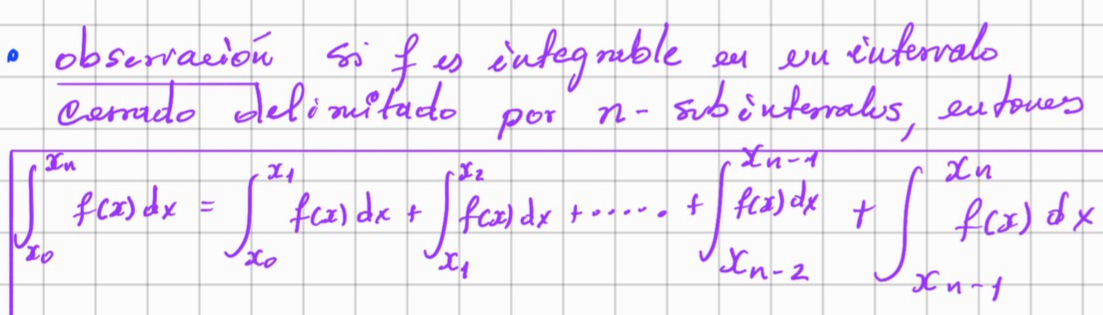 • observación si f es integrable en un intervalo
cerrado delimitado por n - subintervalos, entonces
∫_{x_0}^{x_n} f(x) dx = ∫_{x_0}^{x_1} f(x) dx + ∫_{x_1}^{x_2} f(x) dx + ...... + ∫_{x_{n-2}}^{x_{n-1}} f(x) dx + ∫_{x_{n-1}}^{x_n} f(x) dx